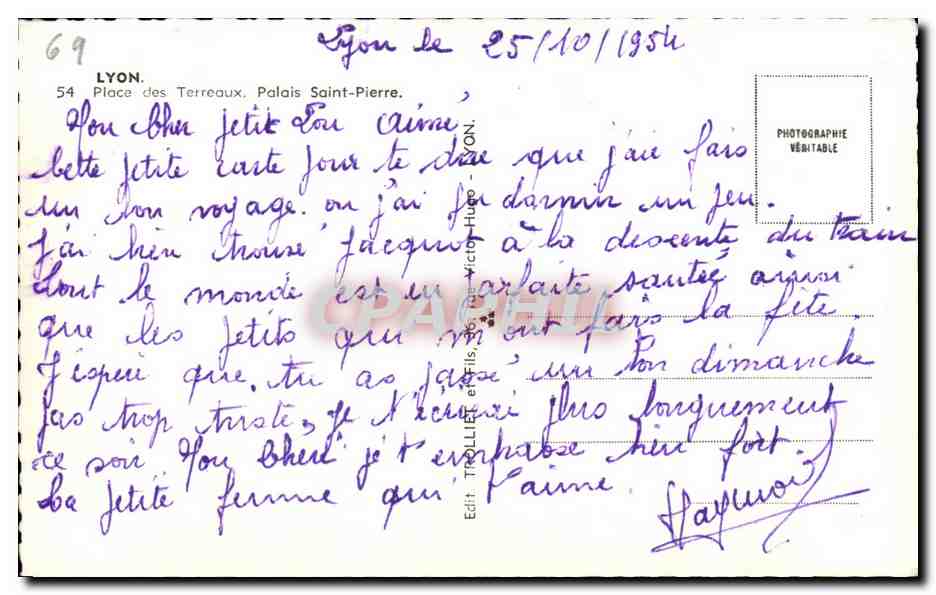 69
Lyon le 25/10/1954
LYON.
54 Place des Terreaux. Palais Saint-Pierre.
PHOTOGRAPHIE
VÉRITABLE
Mon Cher petit Lou aimé
Cette petite carte pour te dire que j'aie fais
un bon voyage. ou j'ai pu dormir un peu.
J'ai bien trouvé Jacquot à la descente du train
tout le monde est en parfaite santée ainsi
que les petits qui m'ont fais la fête.
J'espère que tu as passé un bon dimanche
pas trop triste, je t'écrirai plus longuement
ce soir. Mon Cheri je t'embrasse bien fort.
Ta petite femme qui t'aime.
Edit. TROLLIET et Fils, 36, rue Victor-Hugo - LYON.
CPAPHIL